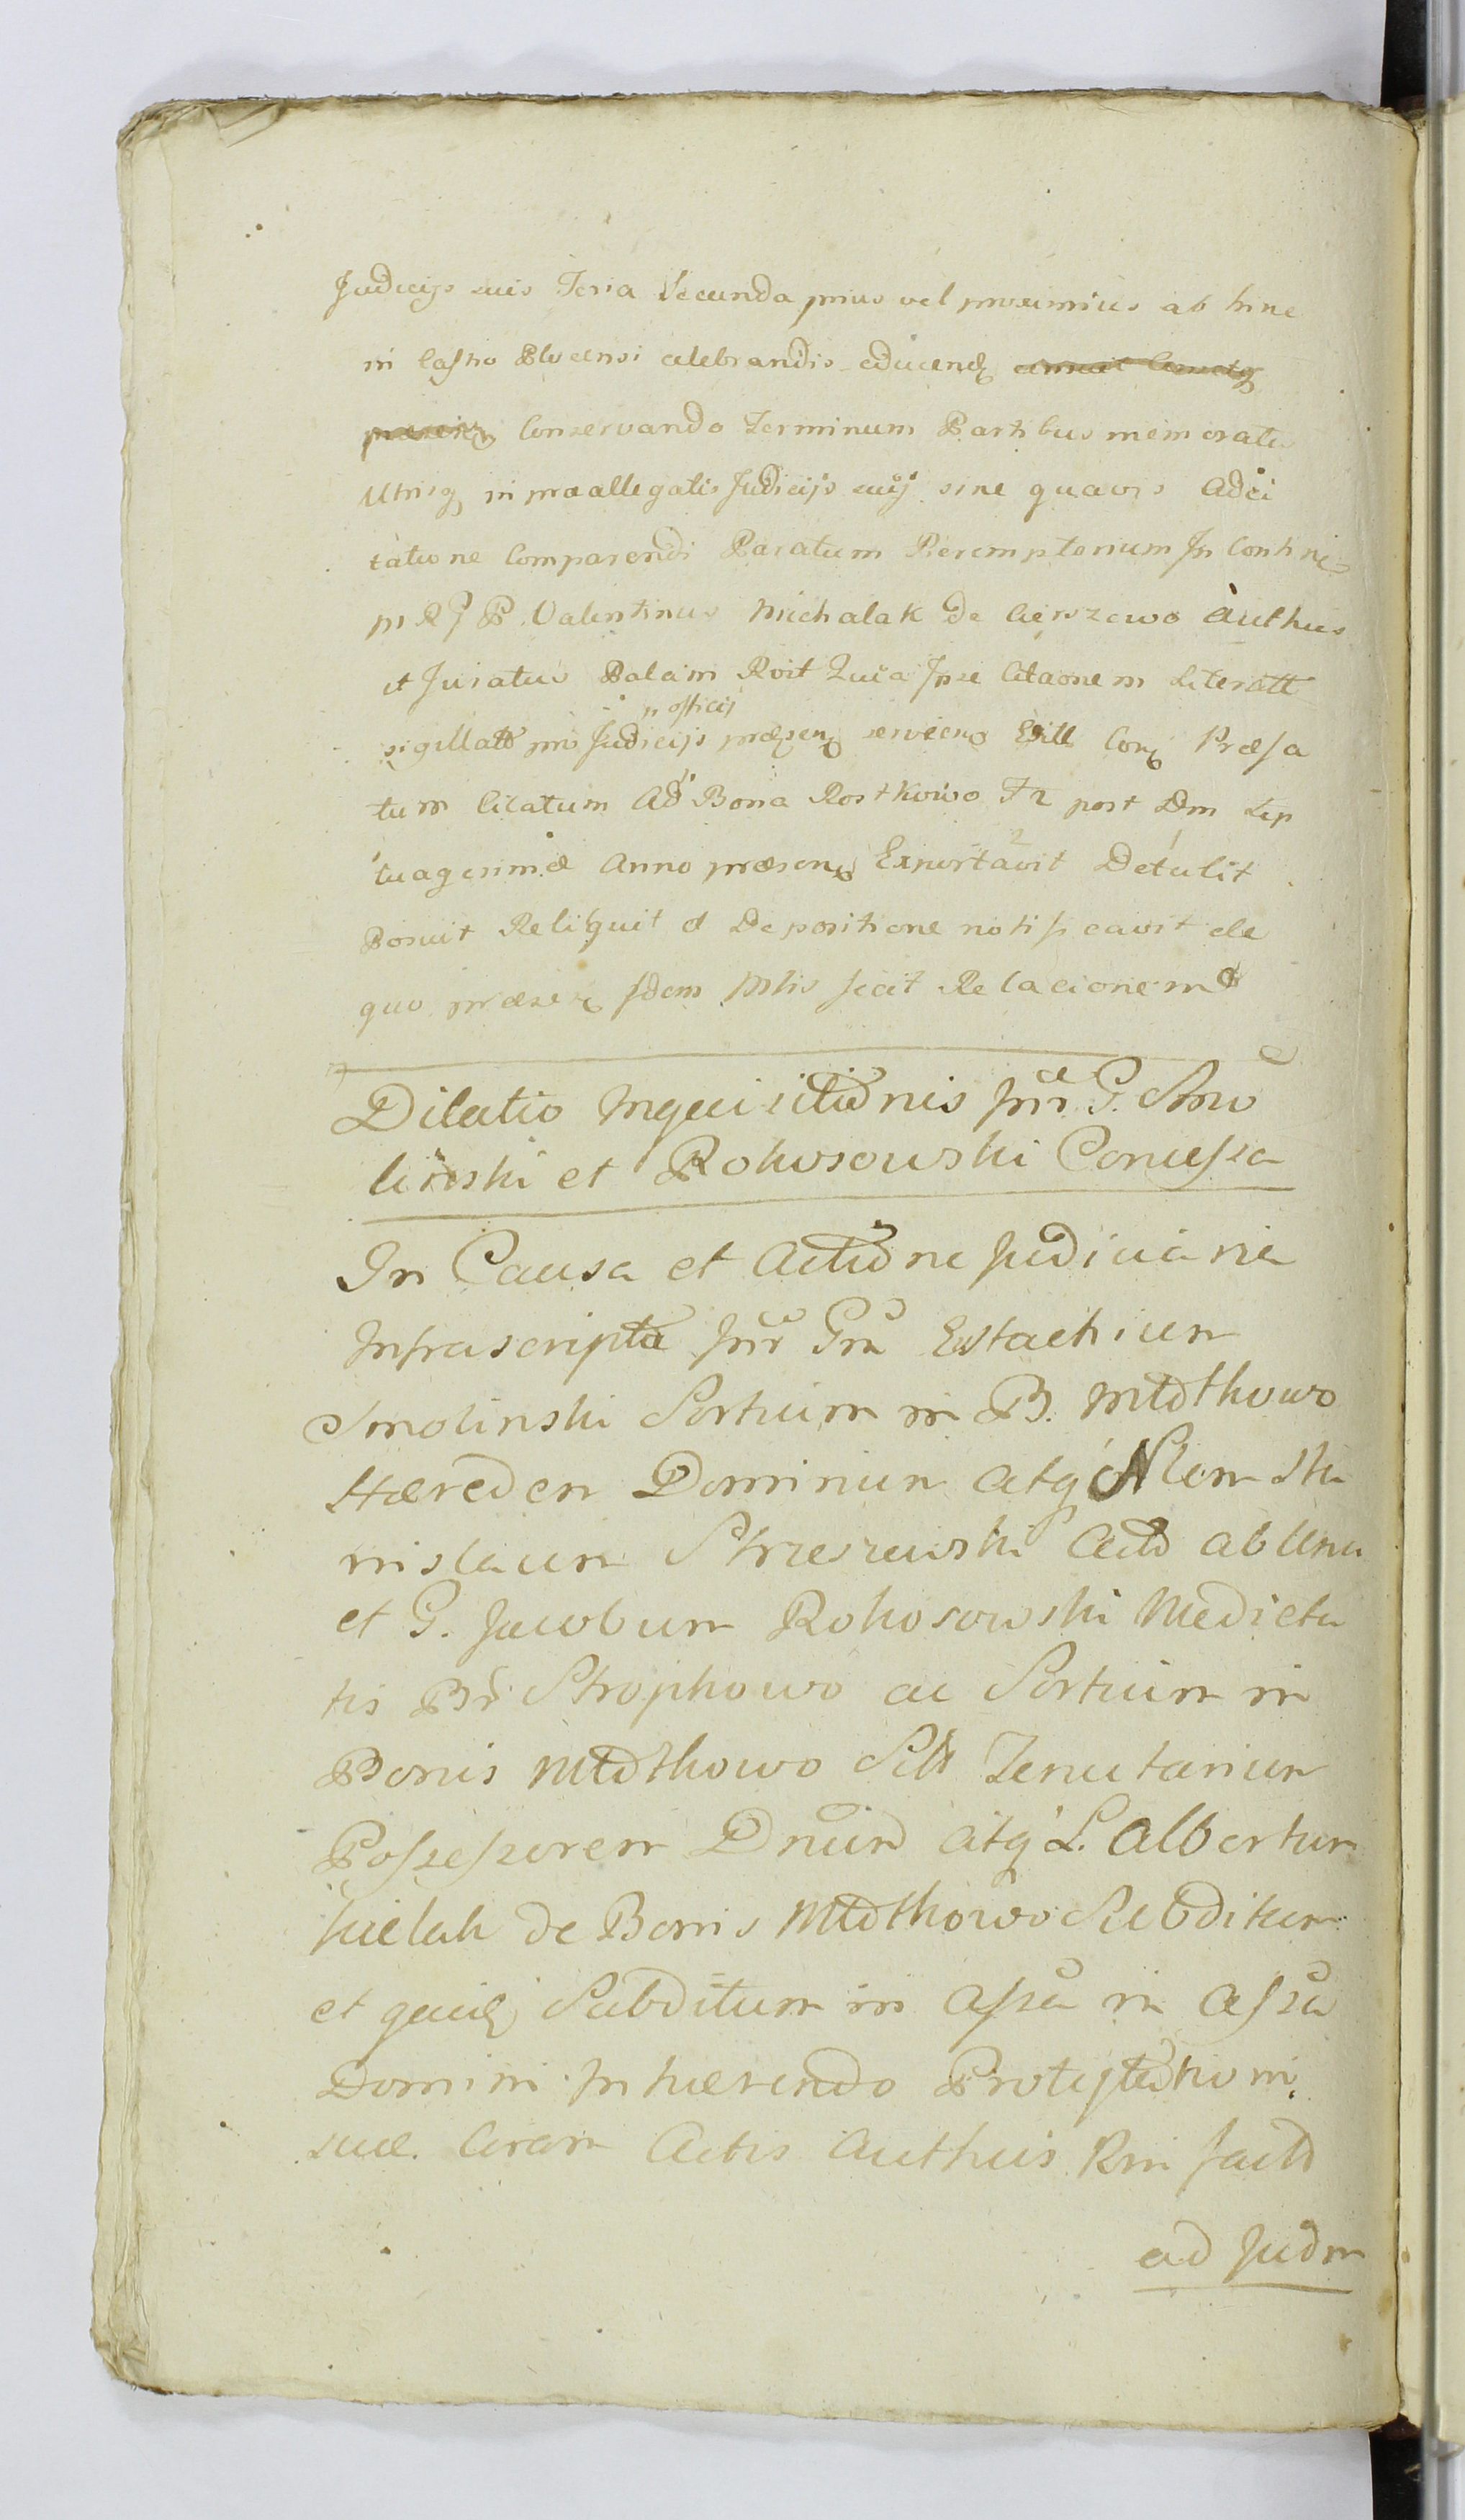 Judicijs suis Feria Secunda prius vel proximius ab hinc
in Castro Plocensi celebrandis educenđ
Conservando Terminum Partibus memoratis
Utrisq in praeallegatis Judicijs suis sine quavis Adci
tatione Comparendi Paratum Peremptorium In Conti
P. Valentinus Michalak de Cierszewo Authus
et Juratus Palam Roit Quia Ipse Citaonem Literatt
p officij
sigillatt pro Judicijs præsen servien Exitt Con Præfa
tum Citatum Ad Bona Rostkowo F2 post Dm Sep
tuagesimæ Anno præsen Exportavit Detulit
Posuit Reliquit et De positione notificavit de
quo præsen Idem Mtlis fecit Relacionem
Dilatio Inquisitionis inr G. Smo
linski et Rokosowski Concessa
In Causa et Actione Judiciaria
Infrascripta Inr Gm Estachium
Smolinski Sortium in B. Młodkowo
Hæredem Dominum atq Nlem Sta
nislaum Strzeszewski Act ab Una
et G. Jacobum Rokosowski Medieta
tis Br Strophowo ac Sortium in
Bonis Młodkowo Sitt Tenutarium
Possessorem Dnum atq L. Albertum
de Bonis Młodkowo Subditum
et quem Subditum in Assa in Assa
Domini Inhærendo Protestationi
suæ Coram Actis Authis Rni factæ
ad Judm